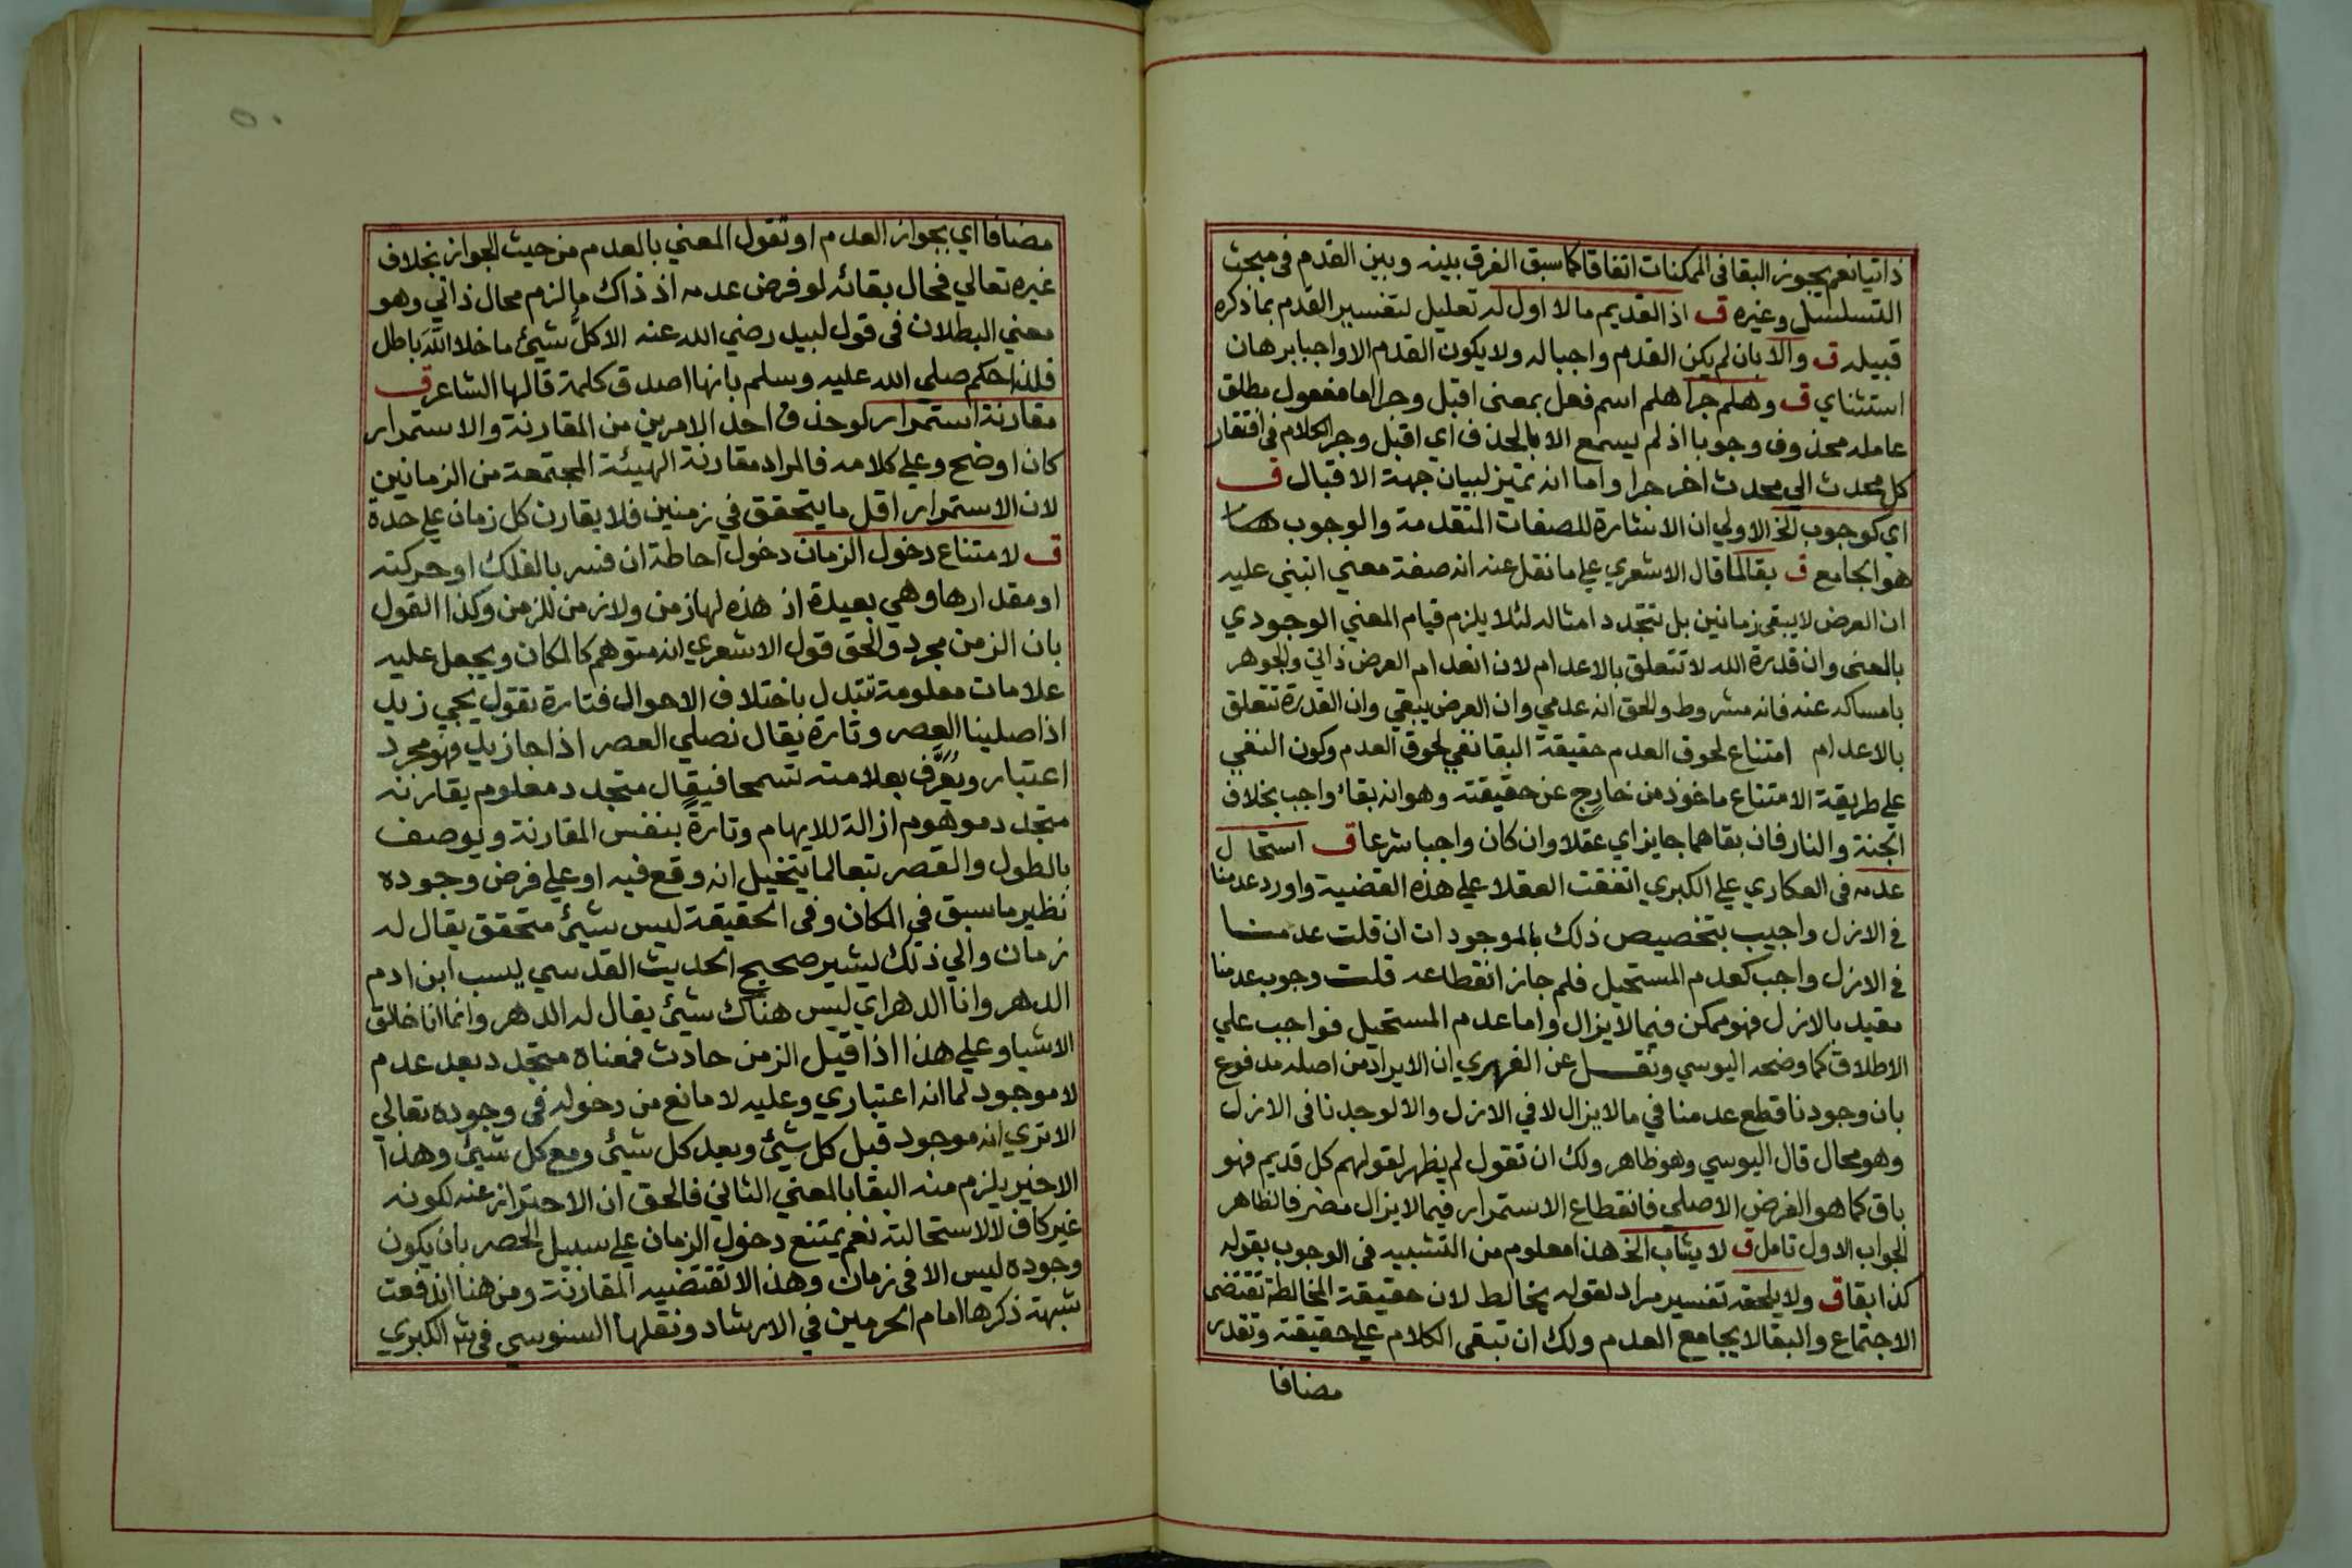 ذاتيا نعم يجوز البقا فى الممكنات اتفاقا كما سبق الفرق بينه وبين القدم فى مبحث
التسلسل وغيره ق اذ القديم ما لا اول له تعليل لتفسير القدم بما ذكره
قبيله ق والا بان لم يكن القدم واجبا له ولا يكون القدم الا واجبا برهان
استثناي ق وهلم جرا هلم اسم فعل بمعنى اقبل وجرا اما مفعول مطلق
عامله محذوف وجوبا اذ لم يسمع الا بالحذف اي اقبل وجر الكلام فى افتقار
كل محدث الي محدث اخر جرا واما انه تميز لبيان جهة الاقبال ق
اي كوجوب الخ الاولي ان الاشارة للصفات المتقدمة والوجوب هنا
هو الجامع ق بقا لما قال الاشعري علي ما نقل عنه انه صفة معني انبني عليه
ان العرض لا يبقى زمانين بل تتجدد امثاله لئلا يلزم قيام المعني الوجودي
بالمعنى وان قدرة الله لا تتعلق بالاعدام لان انعدام العرض ذاتي والجوهر
بامساكه عنه فانه مشروط والحق انه عدمي وان العرض يبقي وان القدرة تتعلق
بالاعدام امتناع لحوق العدم حقيقة البقا نفي لحوق العدم وكون النفي
علي طريقة الامتناع ماخوذ من خارج عن حقيقته وهو انه بقاء واجب بخلاف
الجنة والنار فان بقاهما جايز اي عقلا وان كان واجبا شرعا ق استحال
عدمه فى العكاري علي الكبري اتفقت العقلا علي هذه القضية واورد عدمنا
في الازل واجيب بتخصيص ذلك بالموجودات ان قلت عدمنا
في الازل واجب كعدم المستحيل فلم جاز انقطاعه قلت وجوب عدمنا
مقيد بالازل فهو ممكن فيما لا يزال واما عدم المستحيل فواجب علي
الاطلاق كما وضحه اليوسي ونقل عن الفهري ان الايراد من اصله مدفوع
بان وجودنا قطع عدمنا في ما لا يزال لا في الازل والا لوجدنا فى الازل
وهو محال قال اليوسي وهو ظاهر ولك ان تقول لم يظهر لقولهم كل قديم فهو
باق كما هو الفرض الاصلي فانقطاع الاستمرار فيما لا يزال مضر فالظاهر
الجواب الاول تامل ق لا يشاب الخ هذا معلوم من التشبيه فى الوجوب بقوله
كذا بقا ق ولا يلحقه تفسير مراد لقوله يخالط لان حقيقة المخالطة تقتضى
الاجتماع والبقا لا يجامع العدم ولك ان تبقى الكلام علي حقيقته وتقدر
مضافا
مضافا اي بجواز العدم او تقول المعني بالعدم من حيث الجواز بخلاف
غيره تعالي فحال بقائه لو فرض عدمه اذ ذاك ما لزم محال ذاتي وهو
معني البطلان فى قول لبيد رضي الله عنه الا كل شيئ ما خلا اللهَ باطل
فلذا حكم صلي الله عليه وسلم بانها اصدق كلمة قالها الشاعر ق
مقارنة استمرار لو حذف احد الامرين من المقارنة والاستمرار
كان اوضح وعلي كلامه فالمراد مقارنة الهيئة المجتمعة من الزمانين
لان الاستمرار اقل ما يتحقق في زمنين فلا يقارن كل زمان علي حدة
ق لامتناع دخول الزمان دخول احاطة ان فسر بالفلك او حركته
او مقدارها وهي بعيدة اذ هذه لها زمن ولا زمن للزمن وكذا القول
بان الزمن مجرد والحق قول الاشعري انه متوهم كالمكان ويجعل عليه
علامات معلومة تتبدل باختلاف الاحوال فتارة نقول يجي زيد
اذا صلينا العصر وتارة يقال نصلي العصر اذا جا زيد وهو مجرد
اعتبار ويُعَرَّف بعلامته تسمحا فيقال متجدد معلوم يقارنه
متجدد موهوم ازالة للايهام وتارةً بنفس المقارنة ويوصف
بالطول والقصر تبعا لما يتخيل انه وقع فيه او علي فرض وجوده
نظير ما سبق في المكان وفى الحقيقة ليس شيئ متحقق يقال له
زمان والي ذلك يشير صحيح الحديث القدسي يسب ابن ادم
الدهر وانا الدهر اي ليس هناك شيئ يقال له الدهر وانما انا خالق
الاشيا وعلي هذا اذا قيل الزمن حادث فمعناه متجدد بعد عدم
لا موجود لما انه اعتباري وعليه لا مانع من دخوله فى وجوده تعالي
الا تري انه موجود قبل كل شيئ وبعد كل شيئ ومع كل شيئ وهذا
الاخير يلزم منه البقا بالمعني الثاني فالحق ان الاحتراز عنه لكونه
غير كاف لا لاستحالته نعم يمتنع دخول الزمان علي سبيل الحصر بان يكون
وجوده ليس الا فى زمان وهذا لا تقتضيه المقارنة ومن هنا اندفعت
شبهة ذكرها امام الحرمين في الارشاد ونقلها السنوسي فى شر الكبري